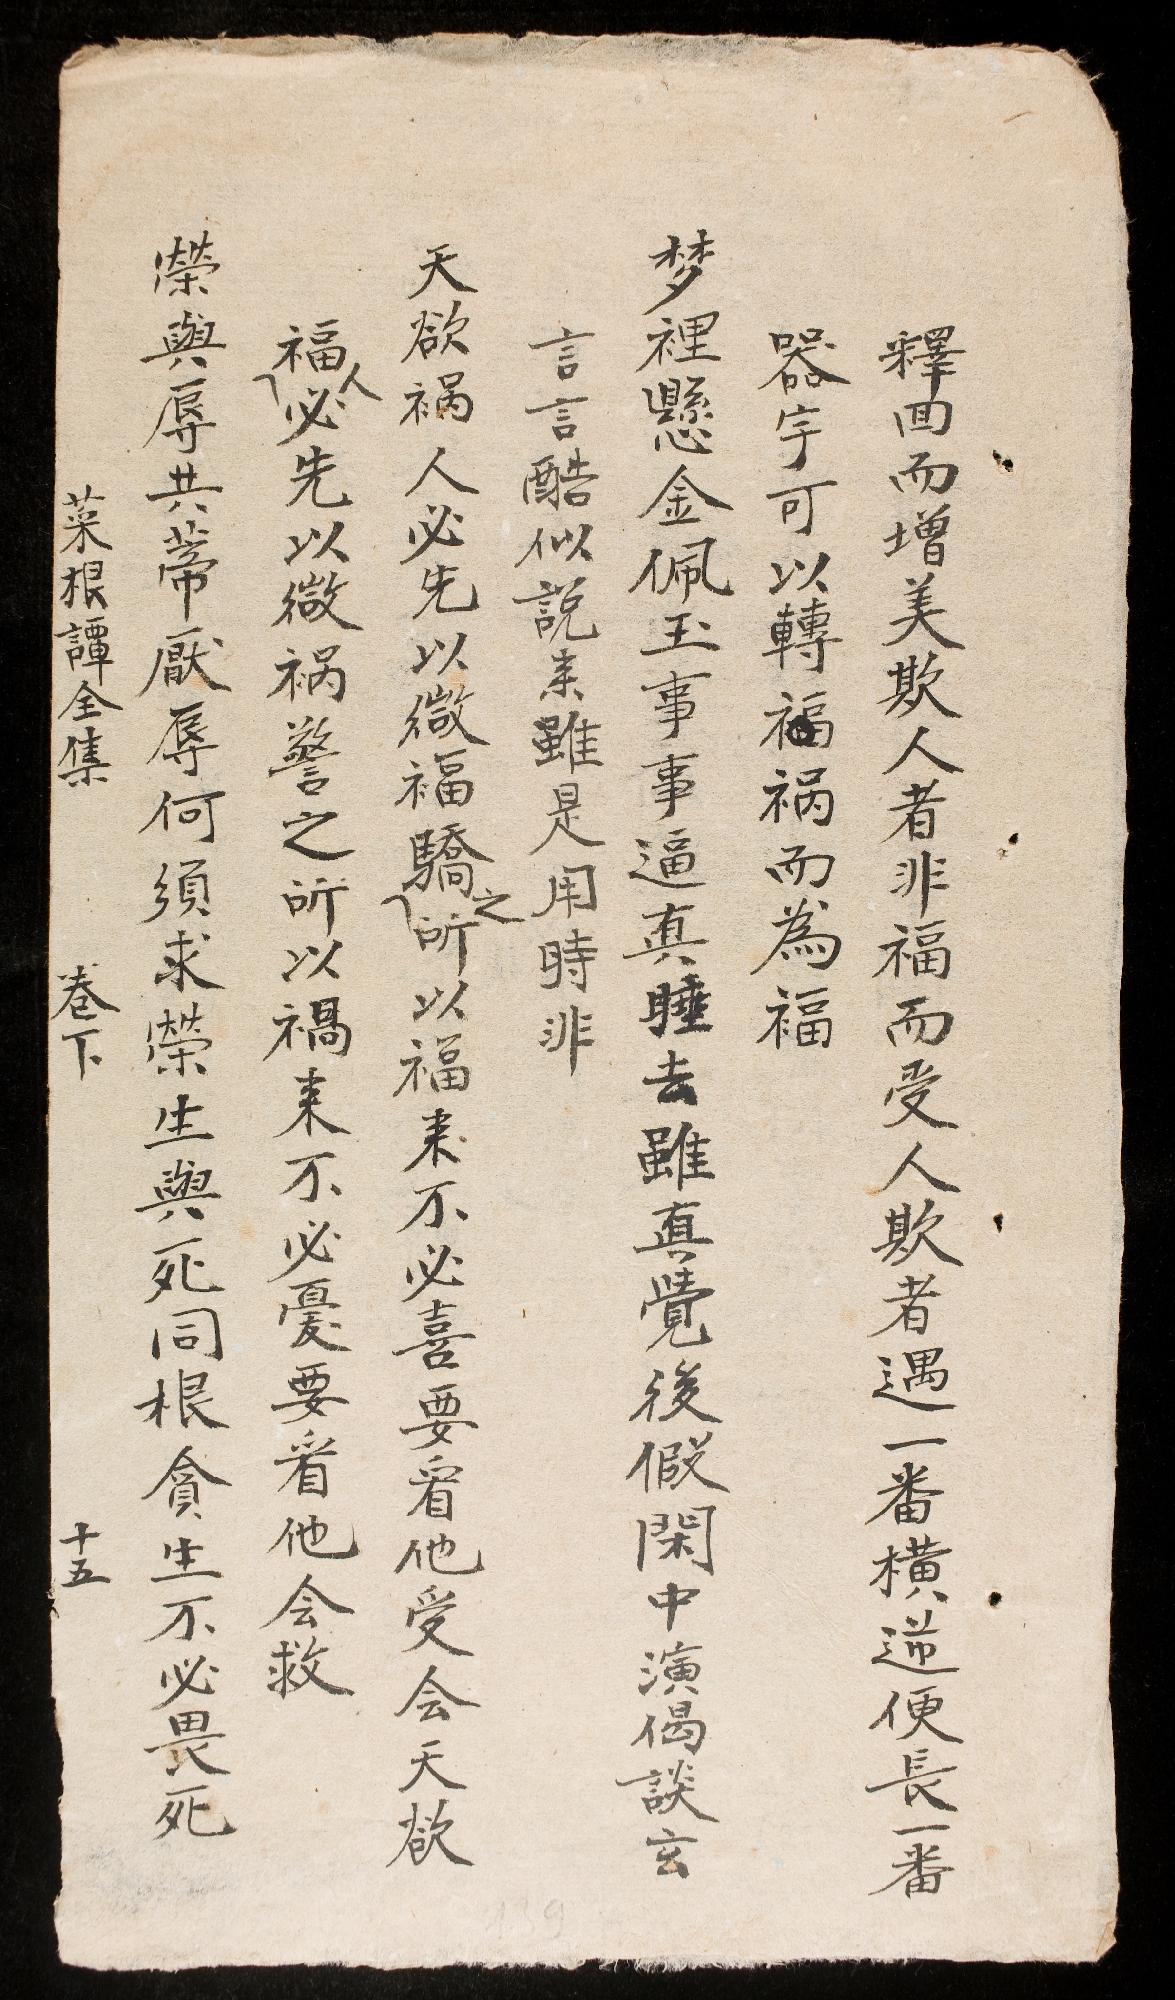 釋回而增美欺人者非福而受人欺者遇一番橫逆便長一番
器宇可以轉福祸而為福
梦裡懸金佩玉事事逼真睡去雖真覺後假閑中演偈談玄
言言酷似説来雖是用時非
天欲祸人必先以微福驕之所以福来不必喜要看他受会天欲
福人必先以微祸警之所以禍来不必憂要看他会救
榮與辱共蒂厭辱何須求榮生與死同根貪生不必畏死
菜根譚全集 卷下 十五
139